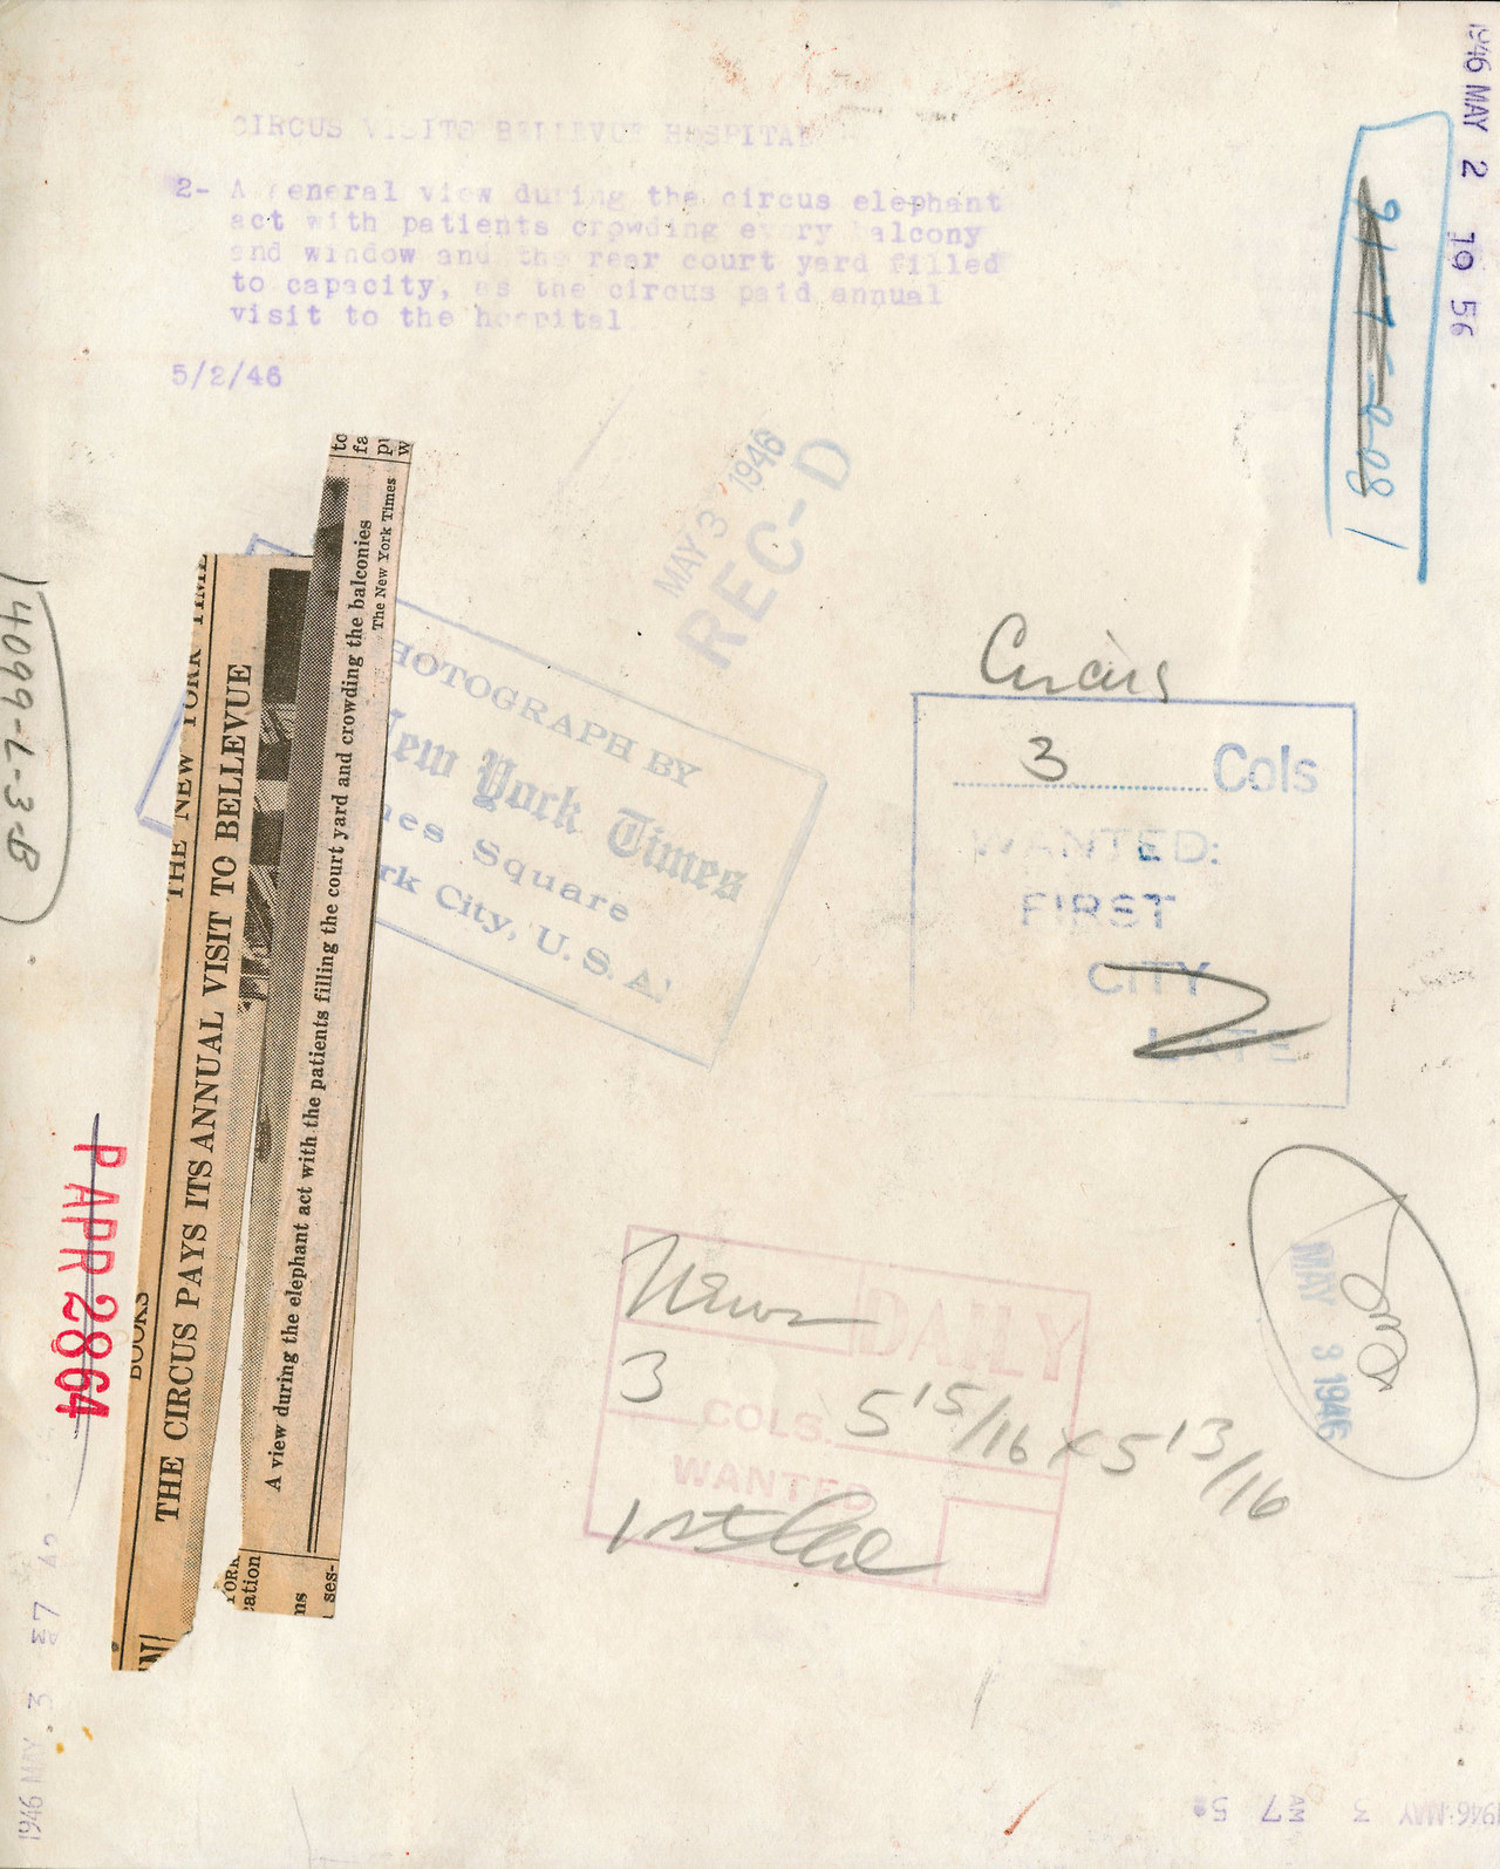 CIRCUS VISITS BELLEVUE HOSPITAL
2- A general view during the circus elephant
act with patients crowding every balcony
and window and the rear court yard filled
to capacity, as the circus paid annual
visit to the hospital
5/2/46
1946 MAY 2 19 56
MAY 3 1946
REC-D
to
fa
pu
w
THE NEW YORK TIME
BOOKS
THE CIRCUS PAYS ITS ANNUAL VISIT TO BELLEVUE
A view during the elephant act with the patients filling the court yard and crowding the balconies
The New York Times
YORK
cation
ns
ses-
HOTOGRAPH BY
New York Times
nes Square
rk City, U. S. A.
14099-L-3-B
Circus
3 Cols
WANTED:
FIRST
CITY
LATE
P APR 2864
News DAILY
3 COLS. 5 15/16 x 5 13/16
WANTED
MAY 3 1946
1946 MAY 3 AM 7
1946 MAY 3 AM 7 5